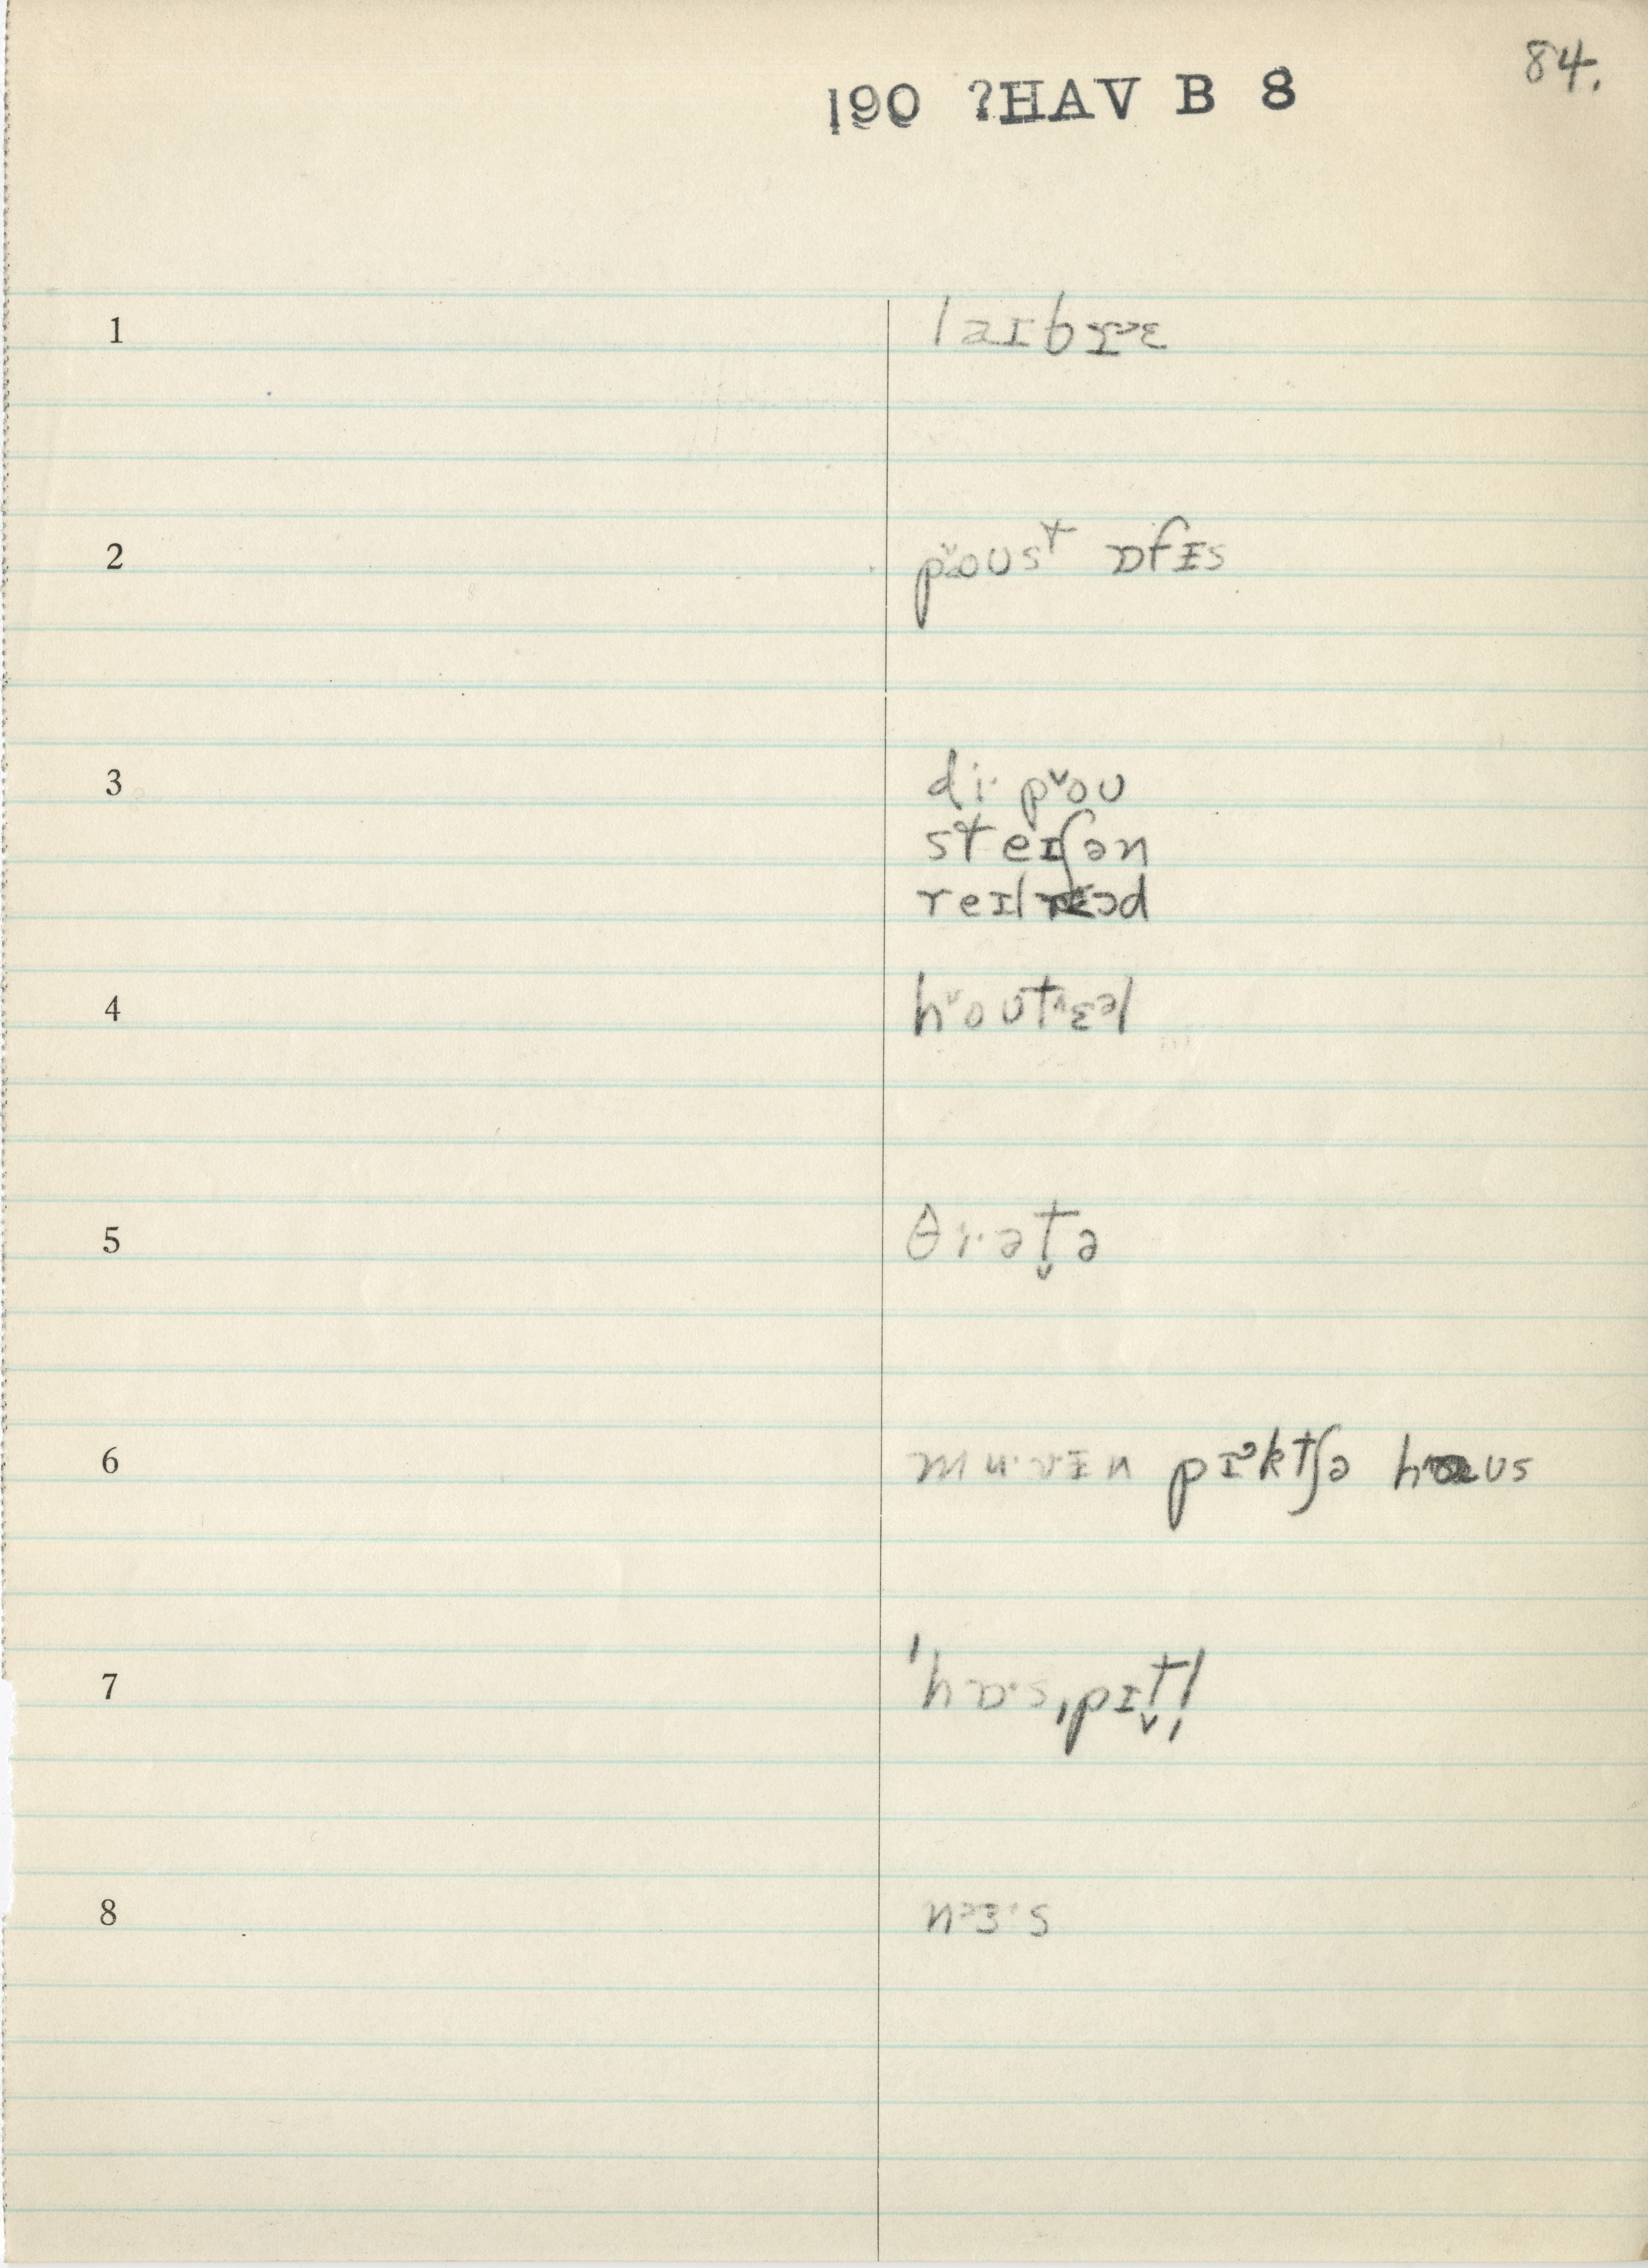 84.
190 ?HAV B 8
1 laɪbrɛ
2 pˇoust ɒfɪs
3 di· pˇou
steɪʃən
reɪlroəd
4 hˇoutˇɛəl
5 θi·ət̬ə
6 mu·vɪn pɪᵊktʃə haus
7 'hɒ·s,pɪt̬l̩
8 nɜ·s